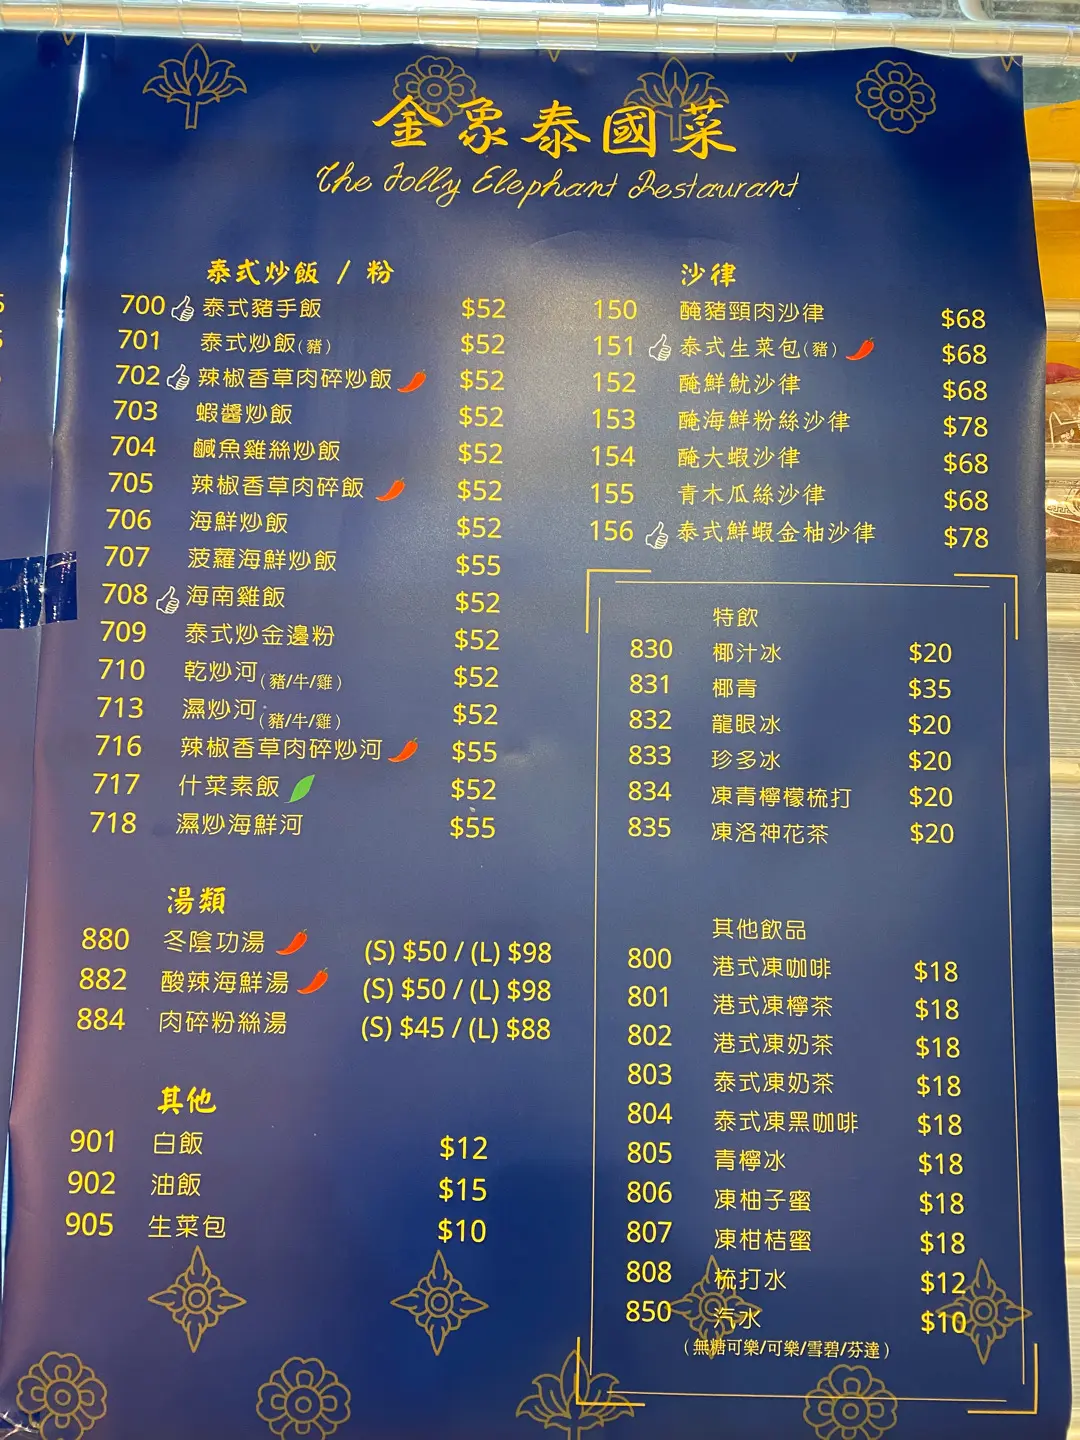 金象泰國菜
The Jolly Elephant Restaurant
泰式炒飯 / 粉
700 泰式豬手飯 $52
701 泰式炒飯(豬) $52
702 辣椒香草肉碎炒飯 $52
703 蝦醬炒飯 $52
704 鹹魚雞絲炒飯 $52
705 辣椒香草肉碎飯 $52
706 海鮮炒飯 $52
707 菠蘿海鮮炒飯 $55
708 海南雞飯 $52
709 泰式炒金邊粉 $52
710 乾炒河(豬/牛/雞) $52
713 濕炒河(豬/牛/雞) $52
716 辣椒香草肉碎炒河 $55
717 什菜素飯 $52
718 濕炒海鮮河 $55
湯類
880 冬陰功湯 (S) $50 / (L) $98
882 酸辣海鮮湯 (S) $50 / (L) $98
884 肉碎粉絲湯 (S) $45 / (L) $88
其他
901 白飯 $12
902 油飯 $15
905 生菜包 $10
沙律
150 醃豬頸肉沙律 $68
151 泰式生菜包(豬) $68
152 醃鮮魷沙律 $68
153 醃海鮮粉絲沙律 $78
154 醃大蝦沙律 $68
155 青木瓜絲沙律 $68
156 泰式鮮蝦金柚沙律 $78
特飲
830 椰汁冰 $20
831 椰青 $35
832 龍眼冰 $20
833 珍多冰 $20
834 凍青檸檬梳打 $20
835 凍洛神花茶 $20
其他飲品
800 港式凍咖啡 $18
801 港式凍檸茶 $18
802 港式凍奶茶 $18
803 泰式凍奶茶 $18
804 泰式凍黑咖啡 $18
805 青檸冰 $18
806 凍柚子蜜 $18
807 凍柑桔蜜 $18
808 梳打水 $12
850 汽水 $10
(無糖可樂/可樂/雪碧/芬達)